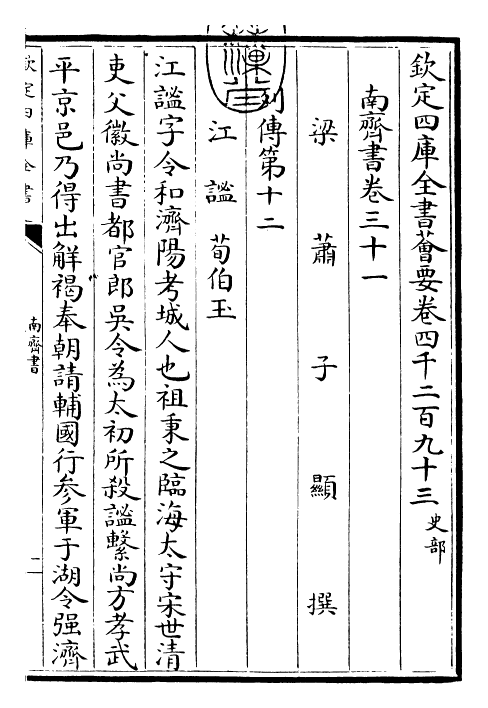 欽定四庫全書薈要卷四千二百九十三 史部
南齊書卷三十一
梁 蕭 子 顯 撰
列傳第十二
江謐 荀伯玉
江謐字令和濟陽考城人也祖秉之臨海太守宋世清
吏父徽尚書都官郎吳令為太初所殺謐繫尚方孝武
平京邑乃得出解褐奉朝請輔國行參軍于湖令强濟
欽定四庫全書
南齊書